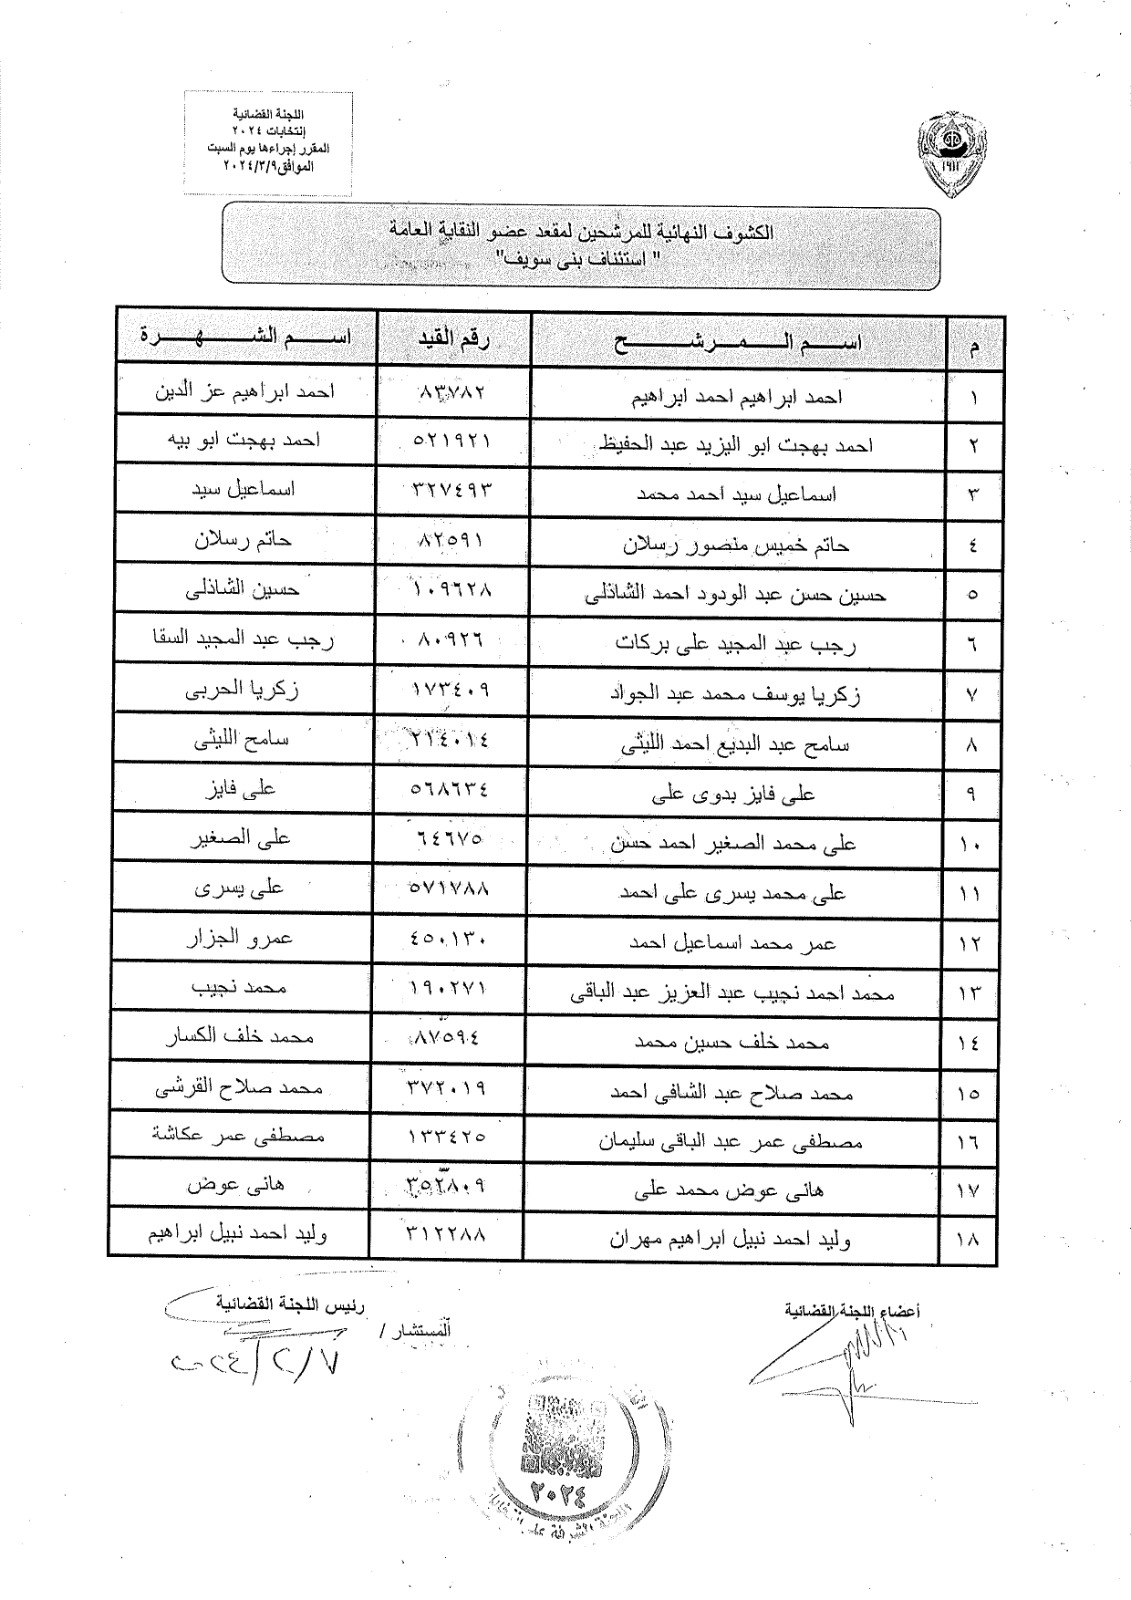 اللجنة القضائية
إنتخابات ٢٠٢٤
المقرر إجراءها يوم السبت
الموافق٢٠٢٤/٣/٩
١٩١٢
الكشوف النهائية للمرشحين لمقعد عضو النقابة العامة
" استئناف بنى سويف"
م اسم المرشح رقم القيد اسم الشهرة
١ احمد ابراهيم احمد ابراهيم ٨٣٧٨٢ احمد ابراهيم عز الدين
٢ احمد بهجت ابو اليزيد عبد الحفيظ ٥٢١٩٢١ احمد بهجت ابو بيه
٣ اسماعيل سيد احمد محمد ٣٢٧٤٩٣ اسماعيل سيد
٤ حاتم خميس منصور رسلان ٨٢٥٩١ حاتم رسلان
٥ حسين حسن عبد الودود احمد الشاذلى ١٠٩٦٢٨ حسين الشاذلى
٦ رجب عبد المجيد على بركات ٨٠٩٢٦ رجب عبد المجيد السقا
٧ زكريا يوسف محمد عبد الجواد ١٧٣٤٠٩ زكريا الحربى
٨ سامح عبد البديع احمد الليثى ٢١٤٠١٤ سامح الليثى
٩ على فايز بدوى على ٥٦٨٦٣٤ على فايز
١٠ على محمد الصغير احمد حسن ٦٤٦٧٥ على الصغير
١١ على محمد يسرى على احمد ٥٧١٧٨٨ على يسرى
١٢ عمر محمد اسماعيل احمد ٤٥٠١٣٠ عمرو الجزار
١٣ محمد احمد نجيب عبد العزيز عبد الباقى ١٩٠٢٧١ محمد نجيب
١٤ محمد خلف حسين محمد ٨٧٥٩٤ محمد خلف الكسار
١٥ محمد صلاح عبد الشافى احمد ٣٧٢٠١٩ محمد صلاح القرشى
١٦ مصطفى عمر عبد الباقى سليمان ١٣٣٤٢٥ مصطفى عمر عكاشة
١٧ هانى عوض محمد على ٣٥٢٨٠٩ هانى عوض
١٨ وليد احمد نبيل ابراهيم مهران ٣١٢٢٨٨ وليد احمد نبيل ابراهيم
أعضاء اللجنة القضائية
رئيس اللجنة القضائية
المستشار /
٢٠٢٤/٢/٧
٢٠٢٤
اللجنة المشرفة على